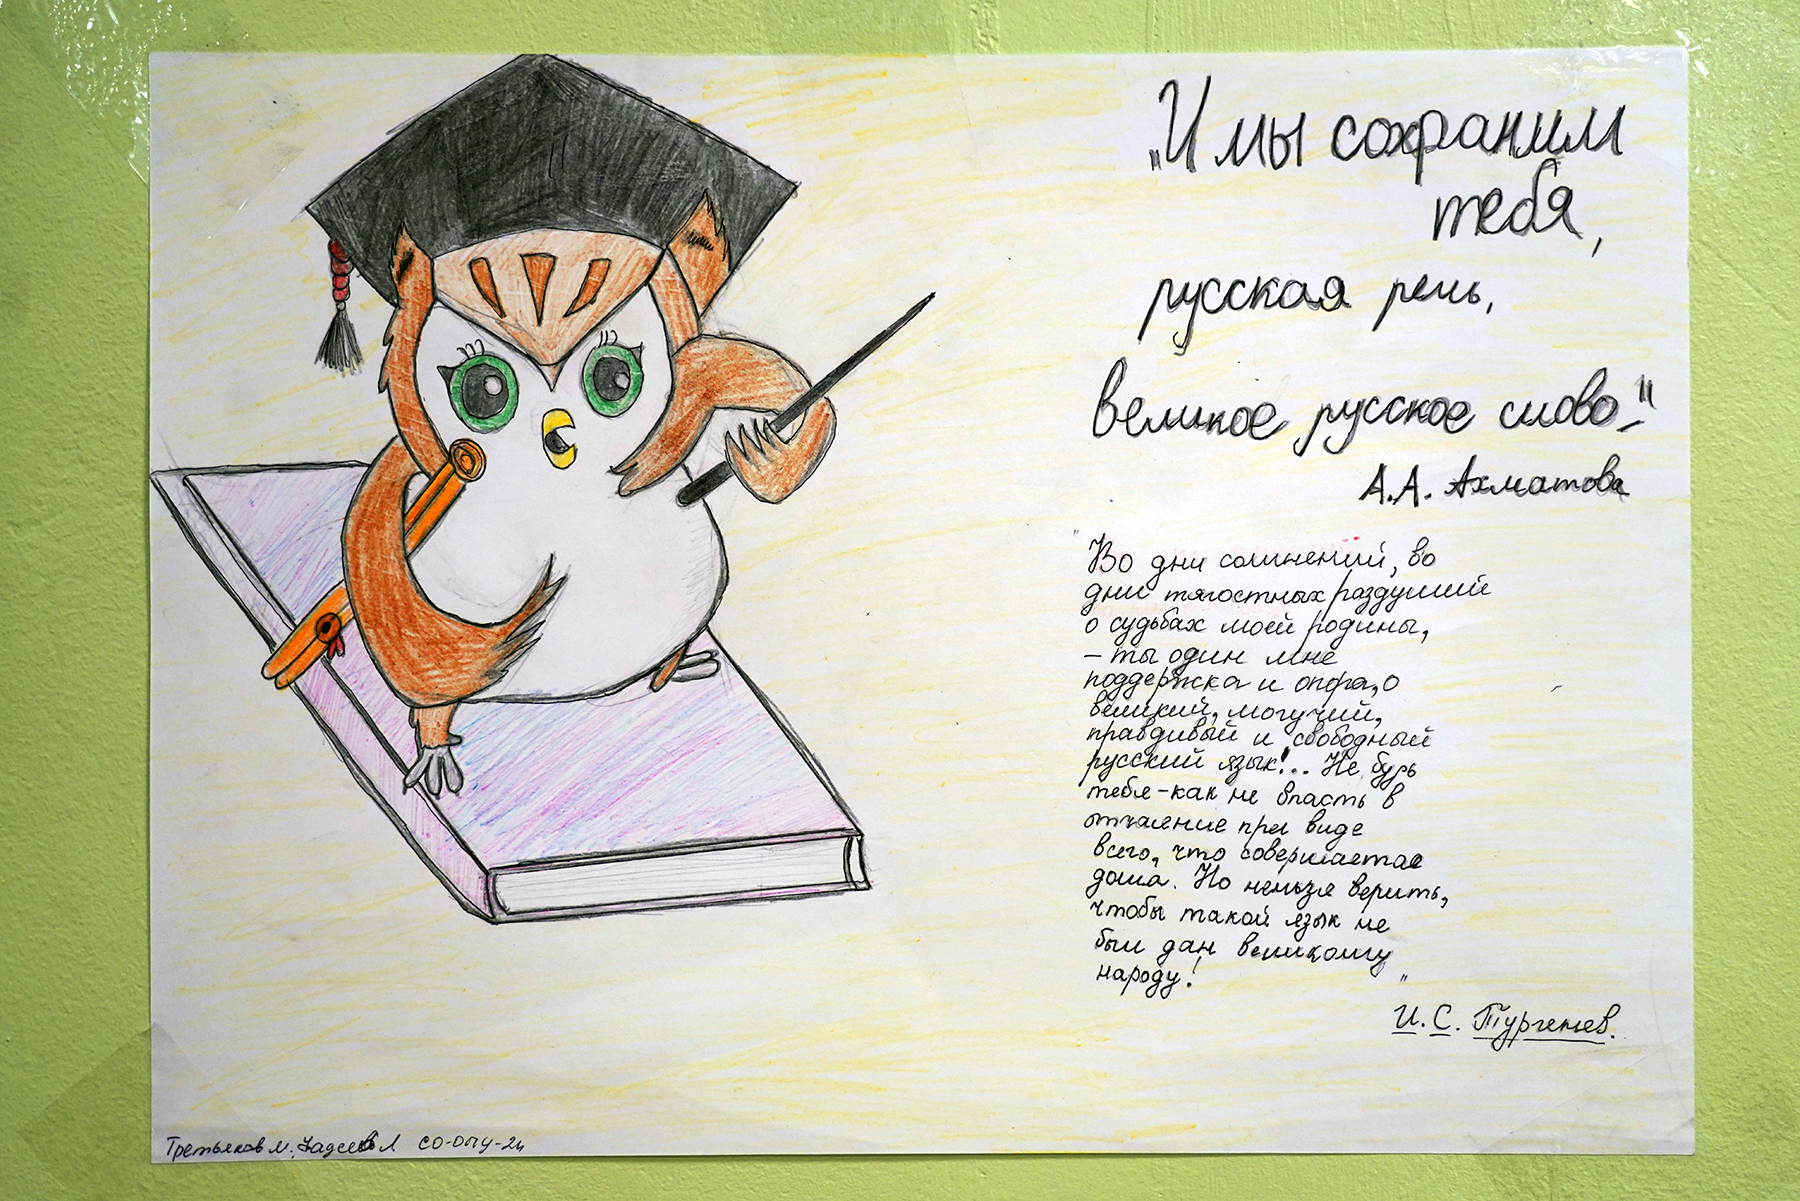 „И мы сохраним
тебя,
русская речь,
великое русское слово."
А.А. Ахматова
"Во дни сомнений, во
дни тягостных раздумий
о судьбах моей родины,
– ты один мне
поддержка и опора, о
великий, могучий,
правдивый и свободный
русский язык!.. Не будь
тебя – как не впасть в
отчаяние при виде
всего, что совершается
дома. Но нельзя верить,
чтобы такой язык не
был дан великому
народу!"
И.С. Тургенев.
Третьяков М., Л СО-ОПУ-24